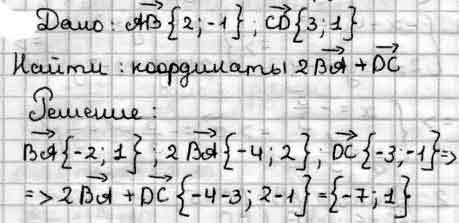 Дано: AB{2;-1}; CD{3;1}
Найти: координаты 2BA + DC
Решение:
BA{-2;1}; 2BA{-4;2}; DC{-3;-1}=>
=> 2BA + DC{-4-3; 2-1} = {-7;1}